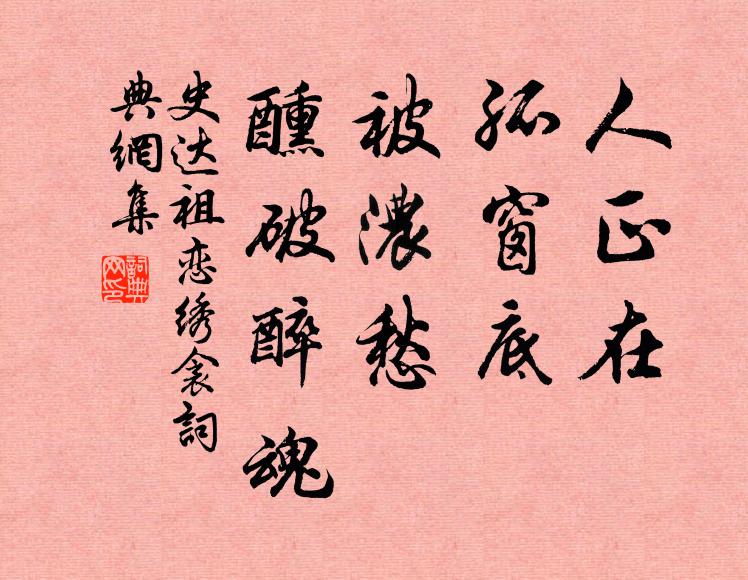 人正在
孤窗底
被濃愁
醺破醉魂
史达祖恋绣衾詞
典網集
詞典
网印